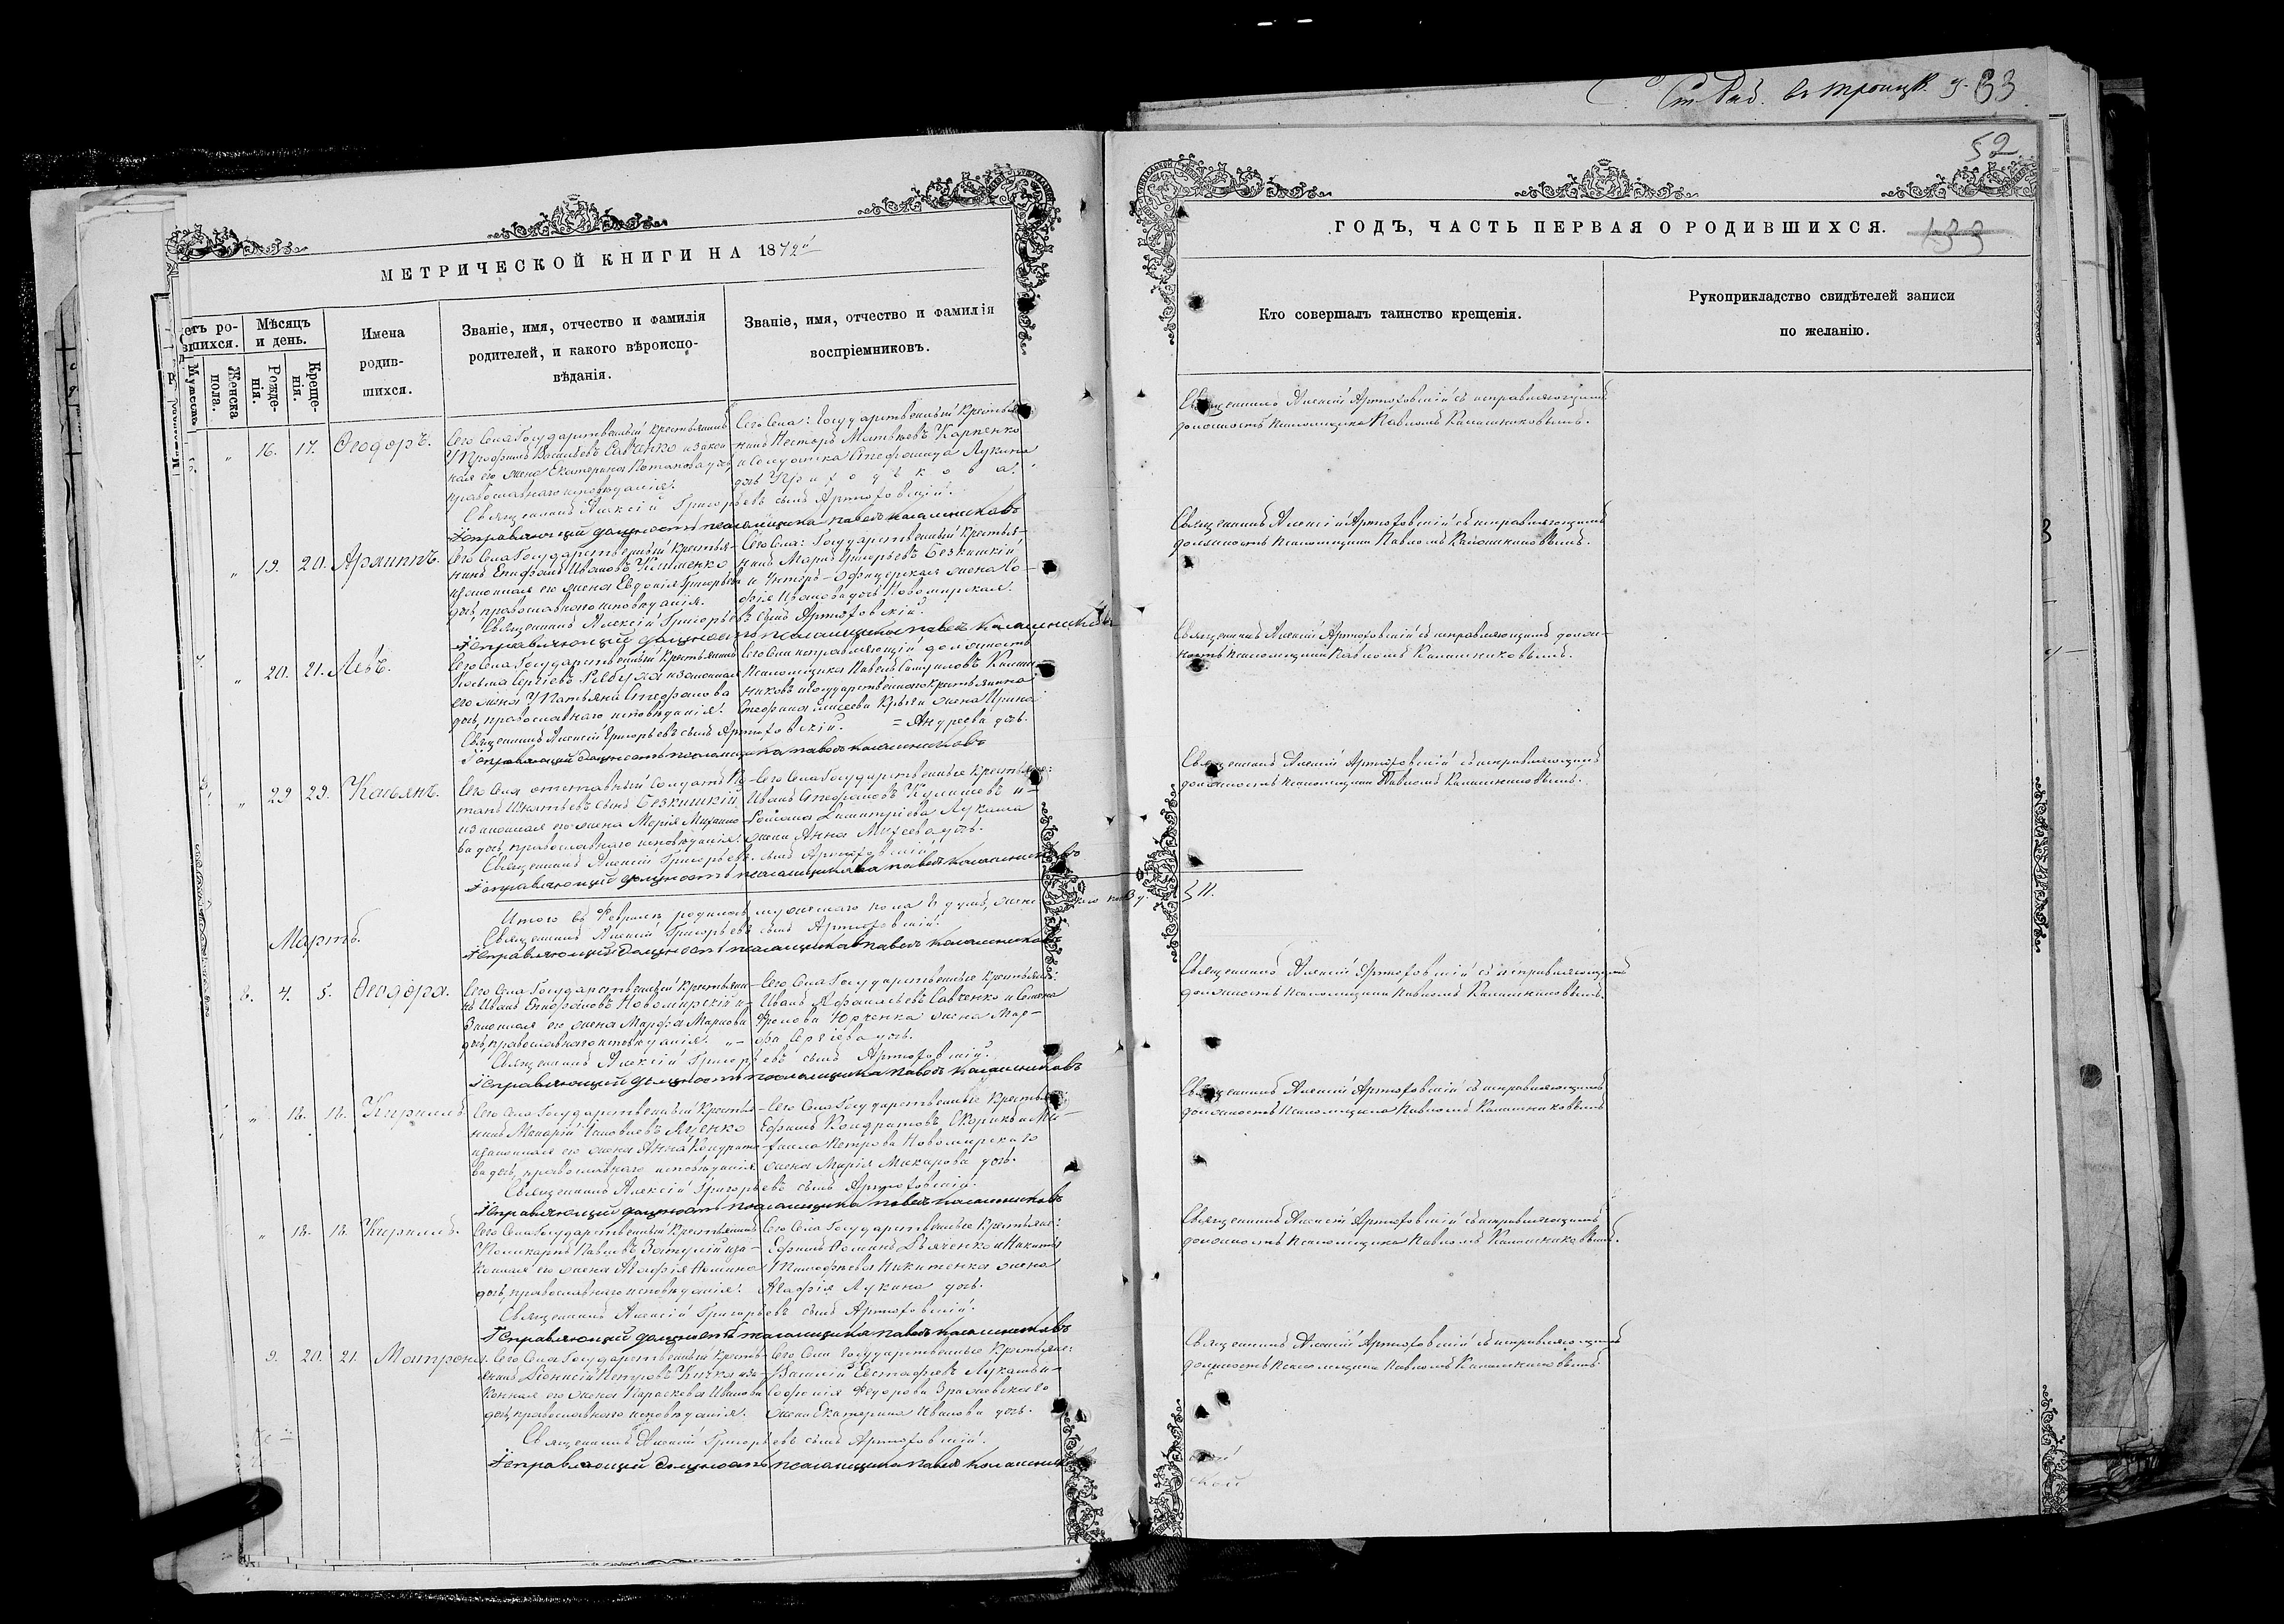 Ст. Раб. въ Троицк. у. 33
52
МЕТРИЧЕСКОЙ КНИГИ НА 1872й
ГОДЪ, ЧАСТЬ ПЕРВАЯ О РОДИВШИХСЯ.
133
етъ ро-
вшихся.
Мѣсяцъ
и день.
Имена
родив-
шихся.
Званіе, имя, отчество и фамилія
родителей, и какого вѣроиспо-
вѣданія.
Званіе, имя, отчество и фамилія
воспріемниковъ.
Кто совершалъ таинство крещенія.
Рукоприкладство свидѣтелей записи
по желанію.
Женска
пола.
Рожде-
нія.
Креще-
нія.
„ 16. 17. Ѳеодоръ.
Сего Села Государственный крестьянинъ
Трофимъ Васильевъ Савченко и закон
ная его жена Екатерина Потапова дочь
православнаго исповѣданія.
Сего Села: Государственный крестья
нинъ Несторъ Матвѣевъ Карпенко
и Солдатка Стефанида Лукина
дочь
Священникъ Алексій Григорьевъ сынъ Артюховскій.
Исправляющій должность псаломщика Павелъ Калашниковъ
Священникъ Алексій Артюховскій съ исправляющимъ
должность псаломщика Павломъ Калашниковымъ.
„ 19. 20. Архиппъ.
Сего Села Государственный крестья-
нинъ Епифанъ Ивановъ Клименко
и законная его жена Евдокія Григорьева
дочь, православнаго исповѣданія.
Сего Села: Государственный крестья-
нинъ Маркъ Григорьевъ Безкишкій
и Унтеръ-Офицерская жена Со-
фія Иванова дочь Новомирская.
Священникъ Алексій Григорьевъ сынъ Артюховскій.
Исправляющій должность псаломщика Павелъ Калашниковъ
Священникъ Алексій Артюховскій съ исправляющимъ
должность псаломщика Павломъ Калашниковымъ.
7. „ 20. 21. Левъ.
Сего Села Государственный крестьянинъ
Косьма Сергіевъ и законная
его жена Татьяна Стефанова
дочь, православнаго исповѣданія.
Сего Села исправляющій должность
псаломщика Павелъ Калаш-
никовъ и Государственнаго крестьянина
Стефана жена Ирина
= Андреева дочь.
Священникъ Алексій Григорьевъ сынъ Артюховскій.
Исправляющій должность псаломщика Павелъ Калашниковъ
Священникъ Алексій Артюховскій съ исправляющимъ долж-
ность псаломщика Павломъ Калашниковымъ.
„ 29 29. Касьянъ.
Сего Села отставный Солдатъ
Игнатьевъ сынъ Безкишкій
и законная его жена Марія Михайло
ва дочь, православнаго исповѣданія.
Сего Села Государственные крестьяне:
Иванъ Стефановъ и-
Романа Димитріева Лукаша
жена Анна Михеева дочь.
Священникъ Алексій Григорьевъ сынъ Артюховскій.
Исправляющій должность псаломщика Павелъ Калашниковъ
Священникъ Алексій Артюховскій съ исправляющимъ
должность псаломщика Павломъ Калашниковымъ.
Итого въ Февралѣ родилось мужескаго пола 8 душъ, женс
11.
Священникъ Алексій Григорьевъ сынъ Артюховскій.
Исправляющій должность псаломщика Павелъ Калашниковъ
Мартъ.
8. 4. 5. Ѳеодора.
Сего Села Государственный крестьяни-
нъ Иванъ Епифановъ Новомирскій и-
законная его жена Марфа Маркова
дочь, православнаго исповѣданія. „-
Сего Села Государственные крестьяне:
Иванъ Аѳанасьевъ Савченко и Семена
Фролова Юрченка жена Мар-
фа Сергіева дочь.
Священникъ Алексій Григорьевъ сынъ Артюховскій.
Исправляющій должность псаломщика Павелъ Калашниковъ
Священникъ Алексій Артюховскій съ исправляющимъ
должность псаломщика Павломъ Калашниковымъ.
„ 18. 18. Кириллъ.
Сего Села Государственный крестья-
нинъ Макарій Яценко
и законная его жена Анна Кондрато-
ва дочь, православнаго исповѣданія.
Сего Села Государственные крестьяне:
Ефимъ Кондратовъ Скорикъ и Ми-
хаила Петрова Новомирскаго
жена Марія Макарова дочь.
Священникъ Алексій Григорьевъ сынъ Артюховскій.
Исправляющій должность псаломщика Павелъ Калашниковъ
Священникъ Алексій Артюховскій съ исправляющимъ
должность псаломщика Павломъ Калашниковымъ
„ 18. 18. Кириллъ.
Сего Села Государственный крестьянинъ
Поликарпъ Павловъ и за-
конная его жена Агафія Фомина
дочь, православнаго исповѣданія.
Сего Села Государственные крестьяне:
Ефимъ Фоминъ Дьяченко и Никиты
Тимофѣева Никитенка жена
Агафія Лукина дочь.
Священникъ Алексій Григорьевъ сынъ Артюховскій.
Исправляющій должность псаломщика Павелъ Калашниковъ
Священникъ Алексій Артюховскій съ исправляющимъ
должность псаломщика Павломъ Калашниковымъ.
9. 20. 21. Матрона.
Сего Села Государственный кресть-
янинъ Діонисій Петровъ Кичка и за-
конная его жена Параскева Иванова
дочь, православнаго исповѣданія.
Сего Села Государственные крестьяне:
Василій Евстафіевъ Лукашъ и-
Софронія Федорова
жена Екатерина Иванова дочь.
Священникъ Алексій Григорьевъ сынъ Артюховскій.
Исправляющій должность псаломщика Павелъ Калашниковъ
Священникъ Алексій Артюховскій съ исправляющимъ
должность псаломщика Павломъ Калашниковымъ.